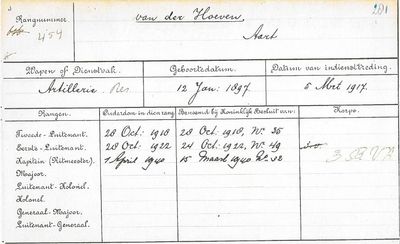 Rangnummer. van der Hoeven, 281
454 Aart
Wapen of Dienstvak. Geboortedatum. Datum van indiensttreding.
Artillerie Res 12 Jan: 1897. 5 Mrt 1917.
Rangen. Ouderdom in dien rang. Benoemd bij Koninklijk Besluit van: Korps.
Tweede-Luitenant. 28 Oct: 1918 28 Oct: 1918, No. 35
Eerste-Luitenant. 28 Oct: 1922 24 Oct: 1922, No. 49
Kapitein (Ritmeester). 1 April 1940 15 Maart 1940 No. 32
Majoor.
Luitenant-Kolonel.
Kolonel.
Generaal-Majoor.
Luitenant-Generaal.